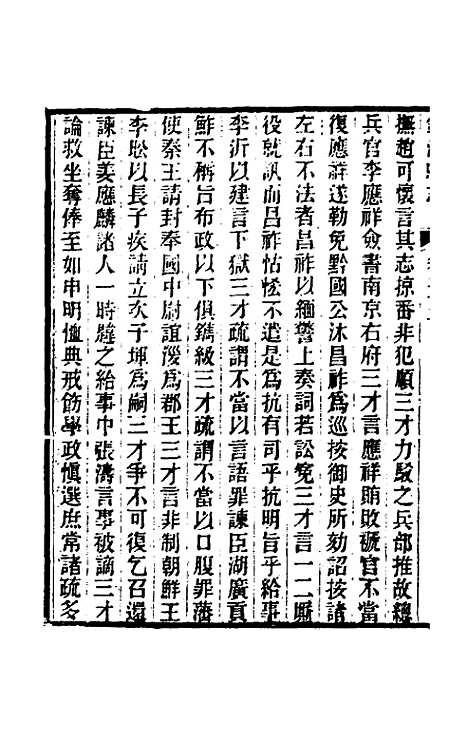 撫趙可懷言其志掠番非犯順三才力駁之兵部推故總
兵官李應祥僉書南京右府三才言應祥賄敗褫官不當
復應祥遂勒免黔國公沐昌祚為巡按御史所劾詔按諸
左右不法者昌祚以緬警上奏詞若訟冤三才言一二厮
役就訊而昌祚怙悋不遣是為抗有司乎抗明旨乎給事
李沂以建言下獄三才疏謂不當以言語罪諫臣湖廣貢
鮓不稱旨布政以下俱鐫級三才疏謂不當以口腹罪藩
使秦王請封奉國中尉誼漫為郡王三才言非制朝鮮王
李昖以長子疾請立次子琿為嗣三才爭不可復乞召還
諫臣姜應麟諸人一時韙之給事中張濤言事被謫三才
論救坐奪俸至如申明恤典戒飭學政慎選庶常諸疏多